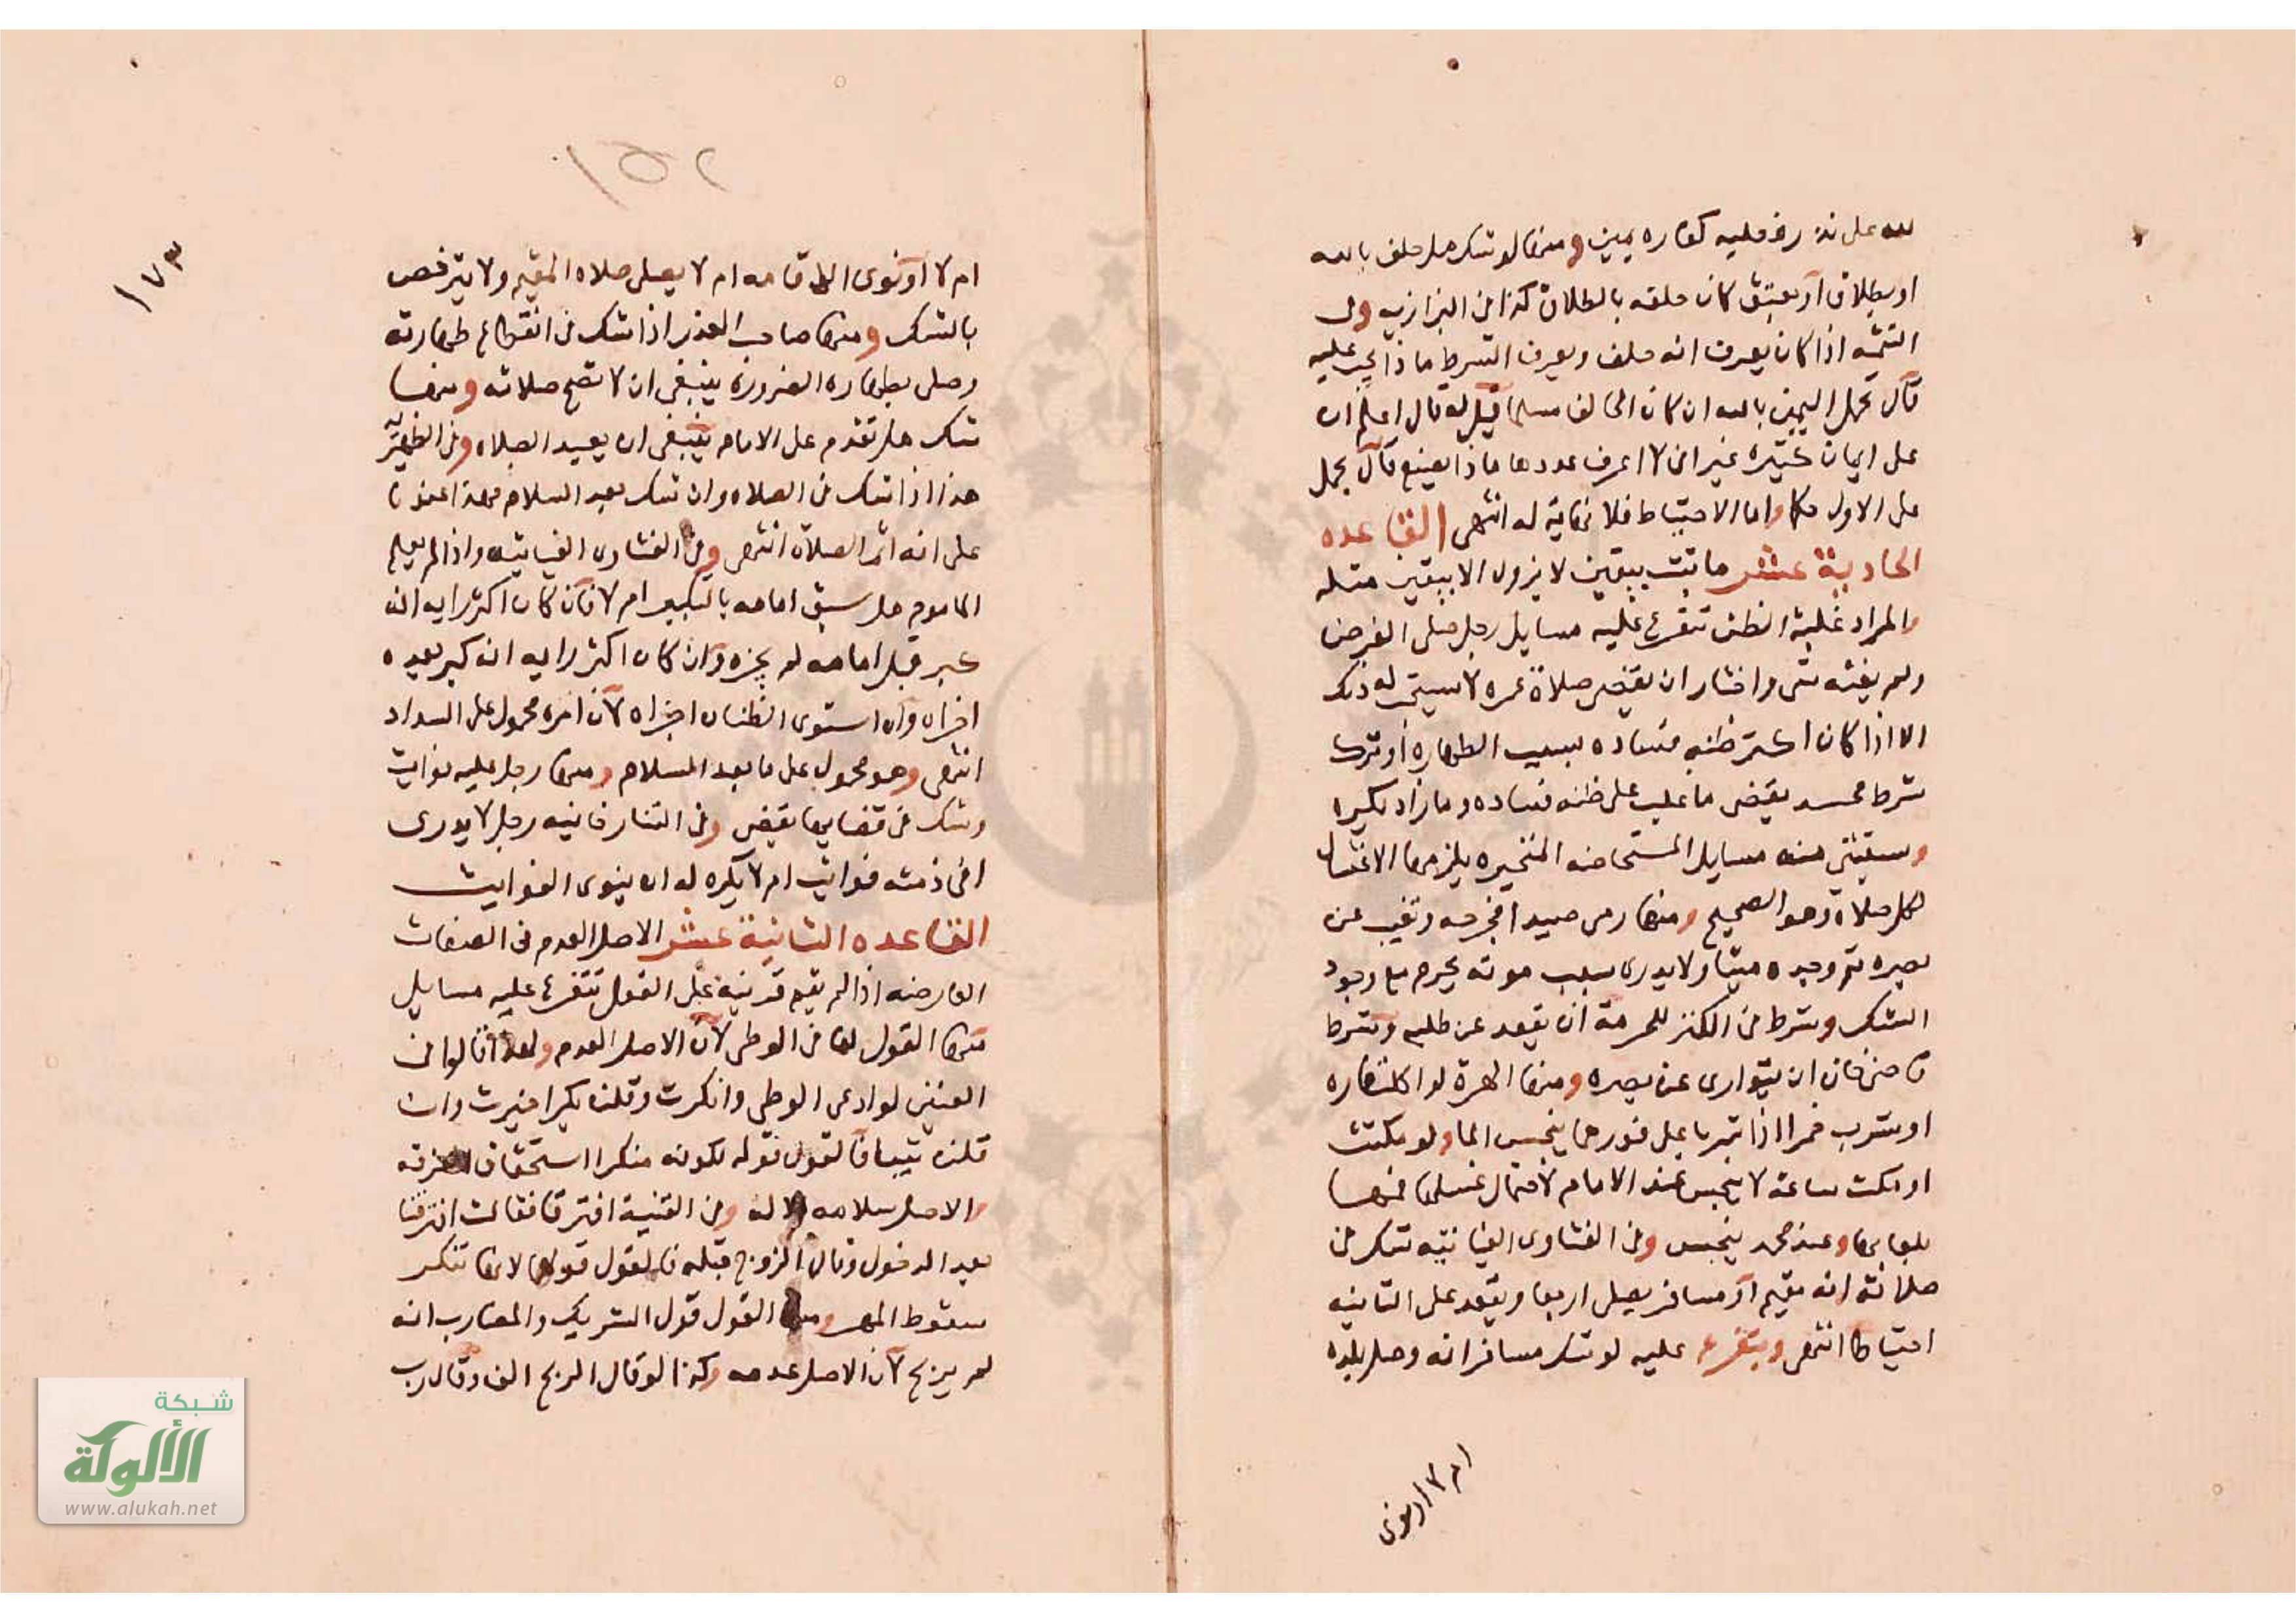 لله على نذر فعليه كفاره يمين ومنها لو شك هل حلف بالله
او بطلاق او بعتق كان حلفه بالطلاق كذا في البزازيه وفي
التتمه اذا كان يعرف انه حلف ويعرف الشرط ماذا يجب عليه
قال يحمل اليمين بالله ان كان الحالف مسلما قيل له قال اعلم ان
على ايمان كثيره غير اني لا اعرف عددها ماذا يصنع قال يحمل
على الاول حكما واما الاحتياط فلا نهاية له انتهى القاعده
الحادية عشر ما ثبت بيقين لا يزول الا بيقين مثله
والمراد غلبة الظن تتفرع عليه مسايل رجل صلى الفرض
ولم يفته شي واختار ان يقضى صلاة عمره لا يستحب له ذلك
الا اذا كان اكثر ظنه فساده بسبب الطهاره او ترك
شرط محمد يقضى ما غلب على ظنه فساده وما زاد يكره
وستثنى منه مسايل المستحاضه المتحيره يلزمها الاغتسال
لكل صلاة وهو الصحيح ومنها رمى صيدا فجرحه وتغيب عن
بصره ثم وجده ميتا ولا يدرى سبب موته يحرم مع وجود
الشك وشرط في الكنز للحرمة ان يقعد عن طلبه وشرط
قاضى خان ان يتوارى عن بصره ومنها الهرة لو اكلت فاره
او شرب خمرا اذا شربا على فورهما ينجس الما ولو مكثت
او مكث ساعة لا ينجس عند الامام لاحتمال غسلها فمها
بلعابها وعند محمد ينجس وفي الفتاوى الغياثيه شك في
صلاته انه مقيم او مسافر يصلى اربعا ويقعد على الثانيه
احتياطا انتهى ويتفرع عليه لو شك مسافر انه وصل بلده
ام لا او نوى
١٥٢
١٧٣
ام لا او نوى الاقامه ام لا يصلى صلاه المقيم ولا يترخص
بالشك ومنها صاحب العذر اذا شك في انقطاع طهارته
وصلى بطهاره الضروره ينبغى ان لا تصح صلاته ومنها
شك هل تقدم على الامام ينبغى ان يعيد الصلاه وفي الظهيريه
هذا اذا شك في الصلاه وان شك بعد السلام
على انه اتم الصلاة انتهى وفي الفتاوى الغياثيه واذا لم يعلم
الماموم هل سبق امامه بالتكبير ام لا فان كان اكثر رايه انه
كبر قبل امامه لم يجزه وان كان اكثر رايه انه كبر بعده
اجزاه وان استوى الظنان اجزاه لان امره محمول على السداد
انتهى وهو محمول على ما بعد السلام ومنها رجل عليه فوايت
وشك في قضايها يقضى وفي التتارخانيه رجل لا يدرى
افي ذمته فوايت ام لا يكره له ان ينوى الفوايت
القاعده الثانية عشر الاصل العدم في الصفات
العارضه اذا لم يقم قرينة على القول تتفرع عليه مسايل
منها القول لها في الوطى لان الاصل العدم ولهذا قالوا في
العنين لو ادعى الوطى وانكرت وقلن بكر اخيرت وان
قلن ثيب فالقول قوله لكونه منكرا استحقاق الفرقه
والاصل سلامه الاله وفي القنية افترقا فقالت افترقنا
بعد الدخول وقال الزوج قبله فالقول قولها لانها تنكر
سقوط المهر ومنها القول قول الشريك والمضارب انه
لم يربح لان الاصل عدمه وكذا لو قال الربح الف وقال رب
شبكة
الألولكة
www.alukah.net